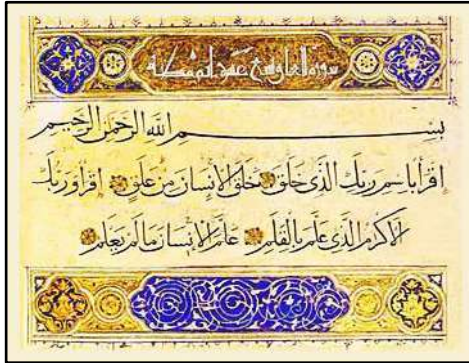 سورة العلق
بِسْمِ اللهِ الرَّحْمٰنِ الرَّحِيمِ
اقْرَأْ بِاسْمِ رَبِّكَ الَّذِي خَلَقَ خَلَقَ الْإِنْسَانَ مِنْ عَلَقٍ اقْرَأْ وَرَبُّكَ
الْأَكْرَمُ الَّذِي عَلَّمَ بِالْقَلَمِ عَلَّمَ الْإِنْسَانَ مَا لَمْ يَعْلَمْ